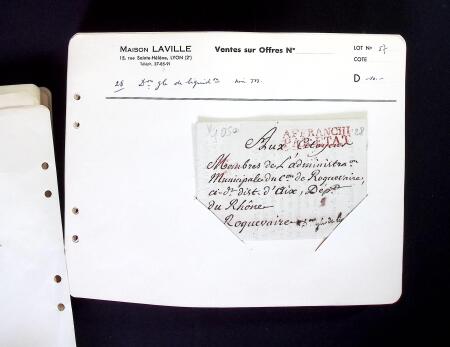 MAISON LAVILLE
15, rue Sainte-Hélène, LYON (2e)
Téléph. 37-85-91
Ventes sur Offres No
LOT No 57
COTE
D
28 Don gle de liquidon
AFFRANCHI
PAR ETAT
28
Aux Citoyens
Membres de L'administraon
Municipale du Con de Roquevaire,
ci-dt dist. d'Aix, Dépt
du Rhône
Roquevaire